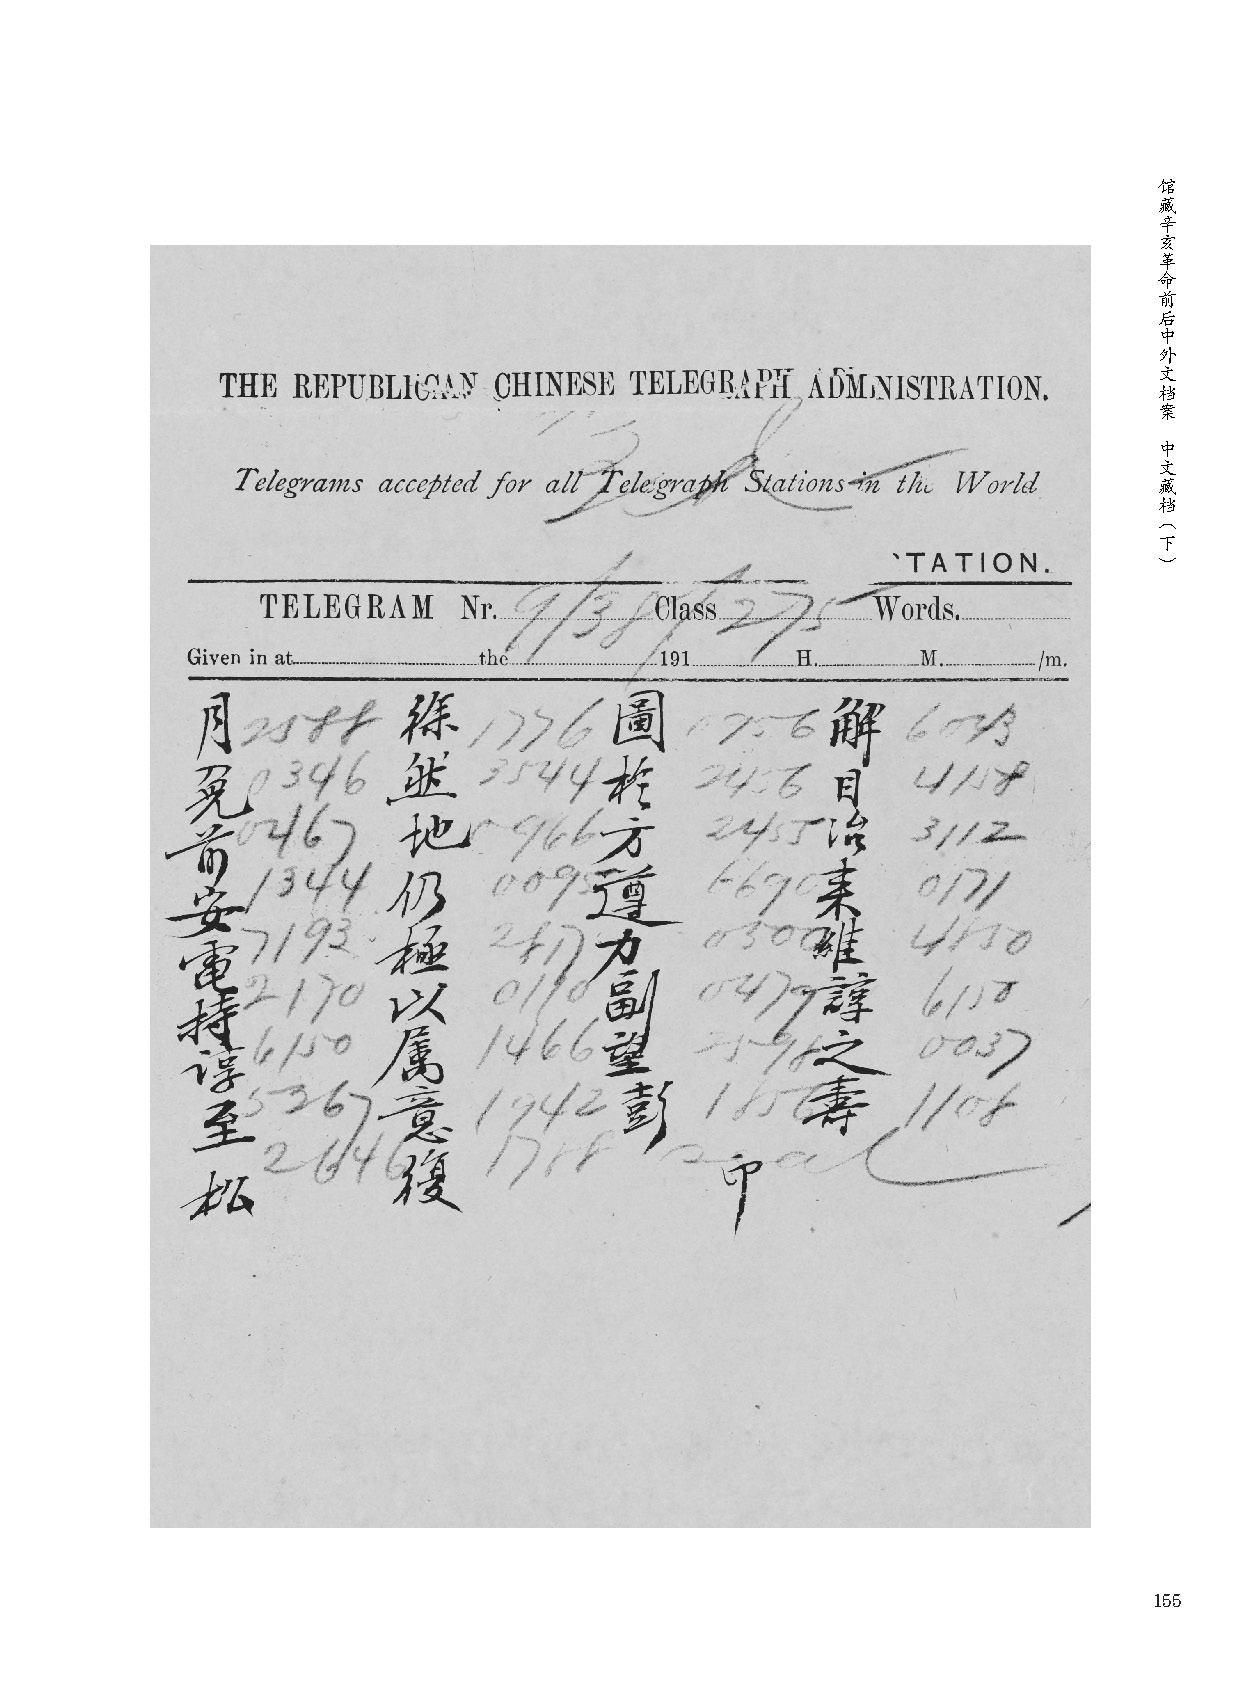 馆藏辛亥革命前后中外文档案 中文藏档（下）
THE REPUBLICAN CHINESE TELEGRAPH ADMINISTRATION.
Telegrams accepted for all Telegraph Stations in the World
TATION.
TELEGRAM Nr. 9/38 Class 275 Words.
Given in at the 191 H. M. /m.
月 2588 徐 1776 圖 0756 解 6043
免 0346 然 3544 於 2456 目 4158
前 0467 地 0966 方 2455 治 3112
安 1344 仍 0095 遵 6690 耒 0171
電 7193 極 2817 力 0500 維 4850
持 2170 以 0110 副 0479 諄 6150
諄 6150 属 1466 望 2598 之 0037
至 5267 意 1942 彭 1856 壽 1108
松 2646 復 1788 印
155